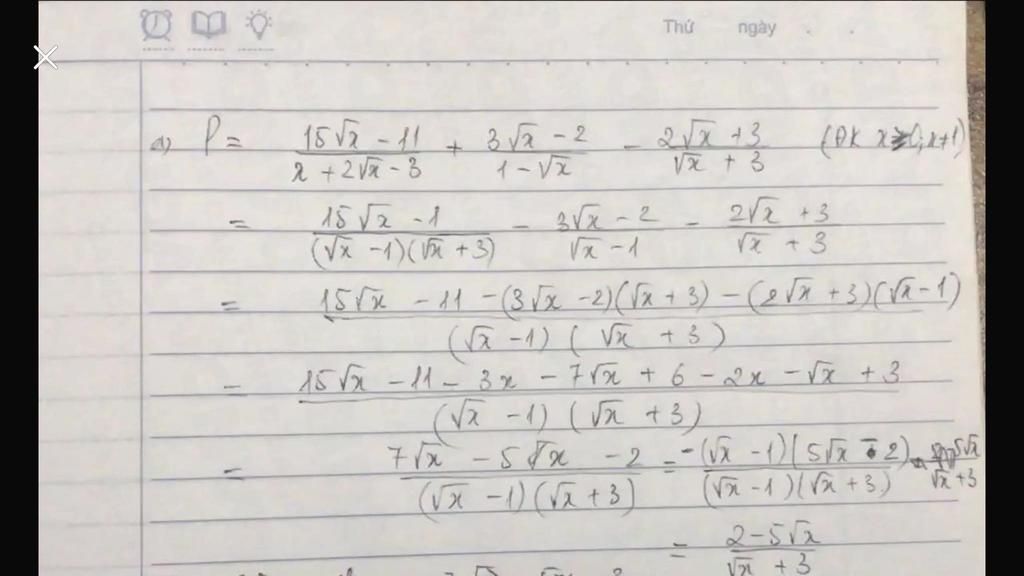 Thứ ngày
a) P = (15√x - 11)/(x + 2√x - 3) + (3√x - 2)/(1 - √x) - (2√x + 3)/(√x + 3) (ĐK x ≥ 0; x ≠ 1)
= (15√x - 1)/((√x - 1)(√x + 3)) - (3√x - 2)/(√x - 1) - (2√x + 3)/(√x + 3)
= (15√x - 11 - (3√x - 2)(√x + 3) - (2√x + 3)(√x - 1))/((√x - 1)(√x + 3))
= (15√x - 11 - 3x - 7√x + 6 - 2x - √x + 3)/((√x - 1)(√x + 3))
= (7√x - 5√x - 2)/((√x - 1)(√x + 3)) = (-(√x - 1)(5√x - 2))/((√x - 1)(√x + 3))
= (2 - 5√x)/(√x + 3)